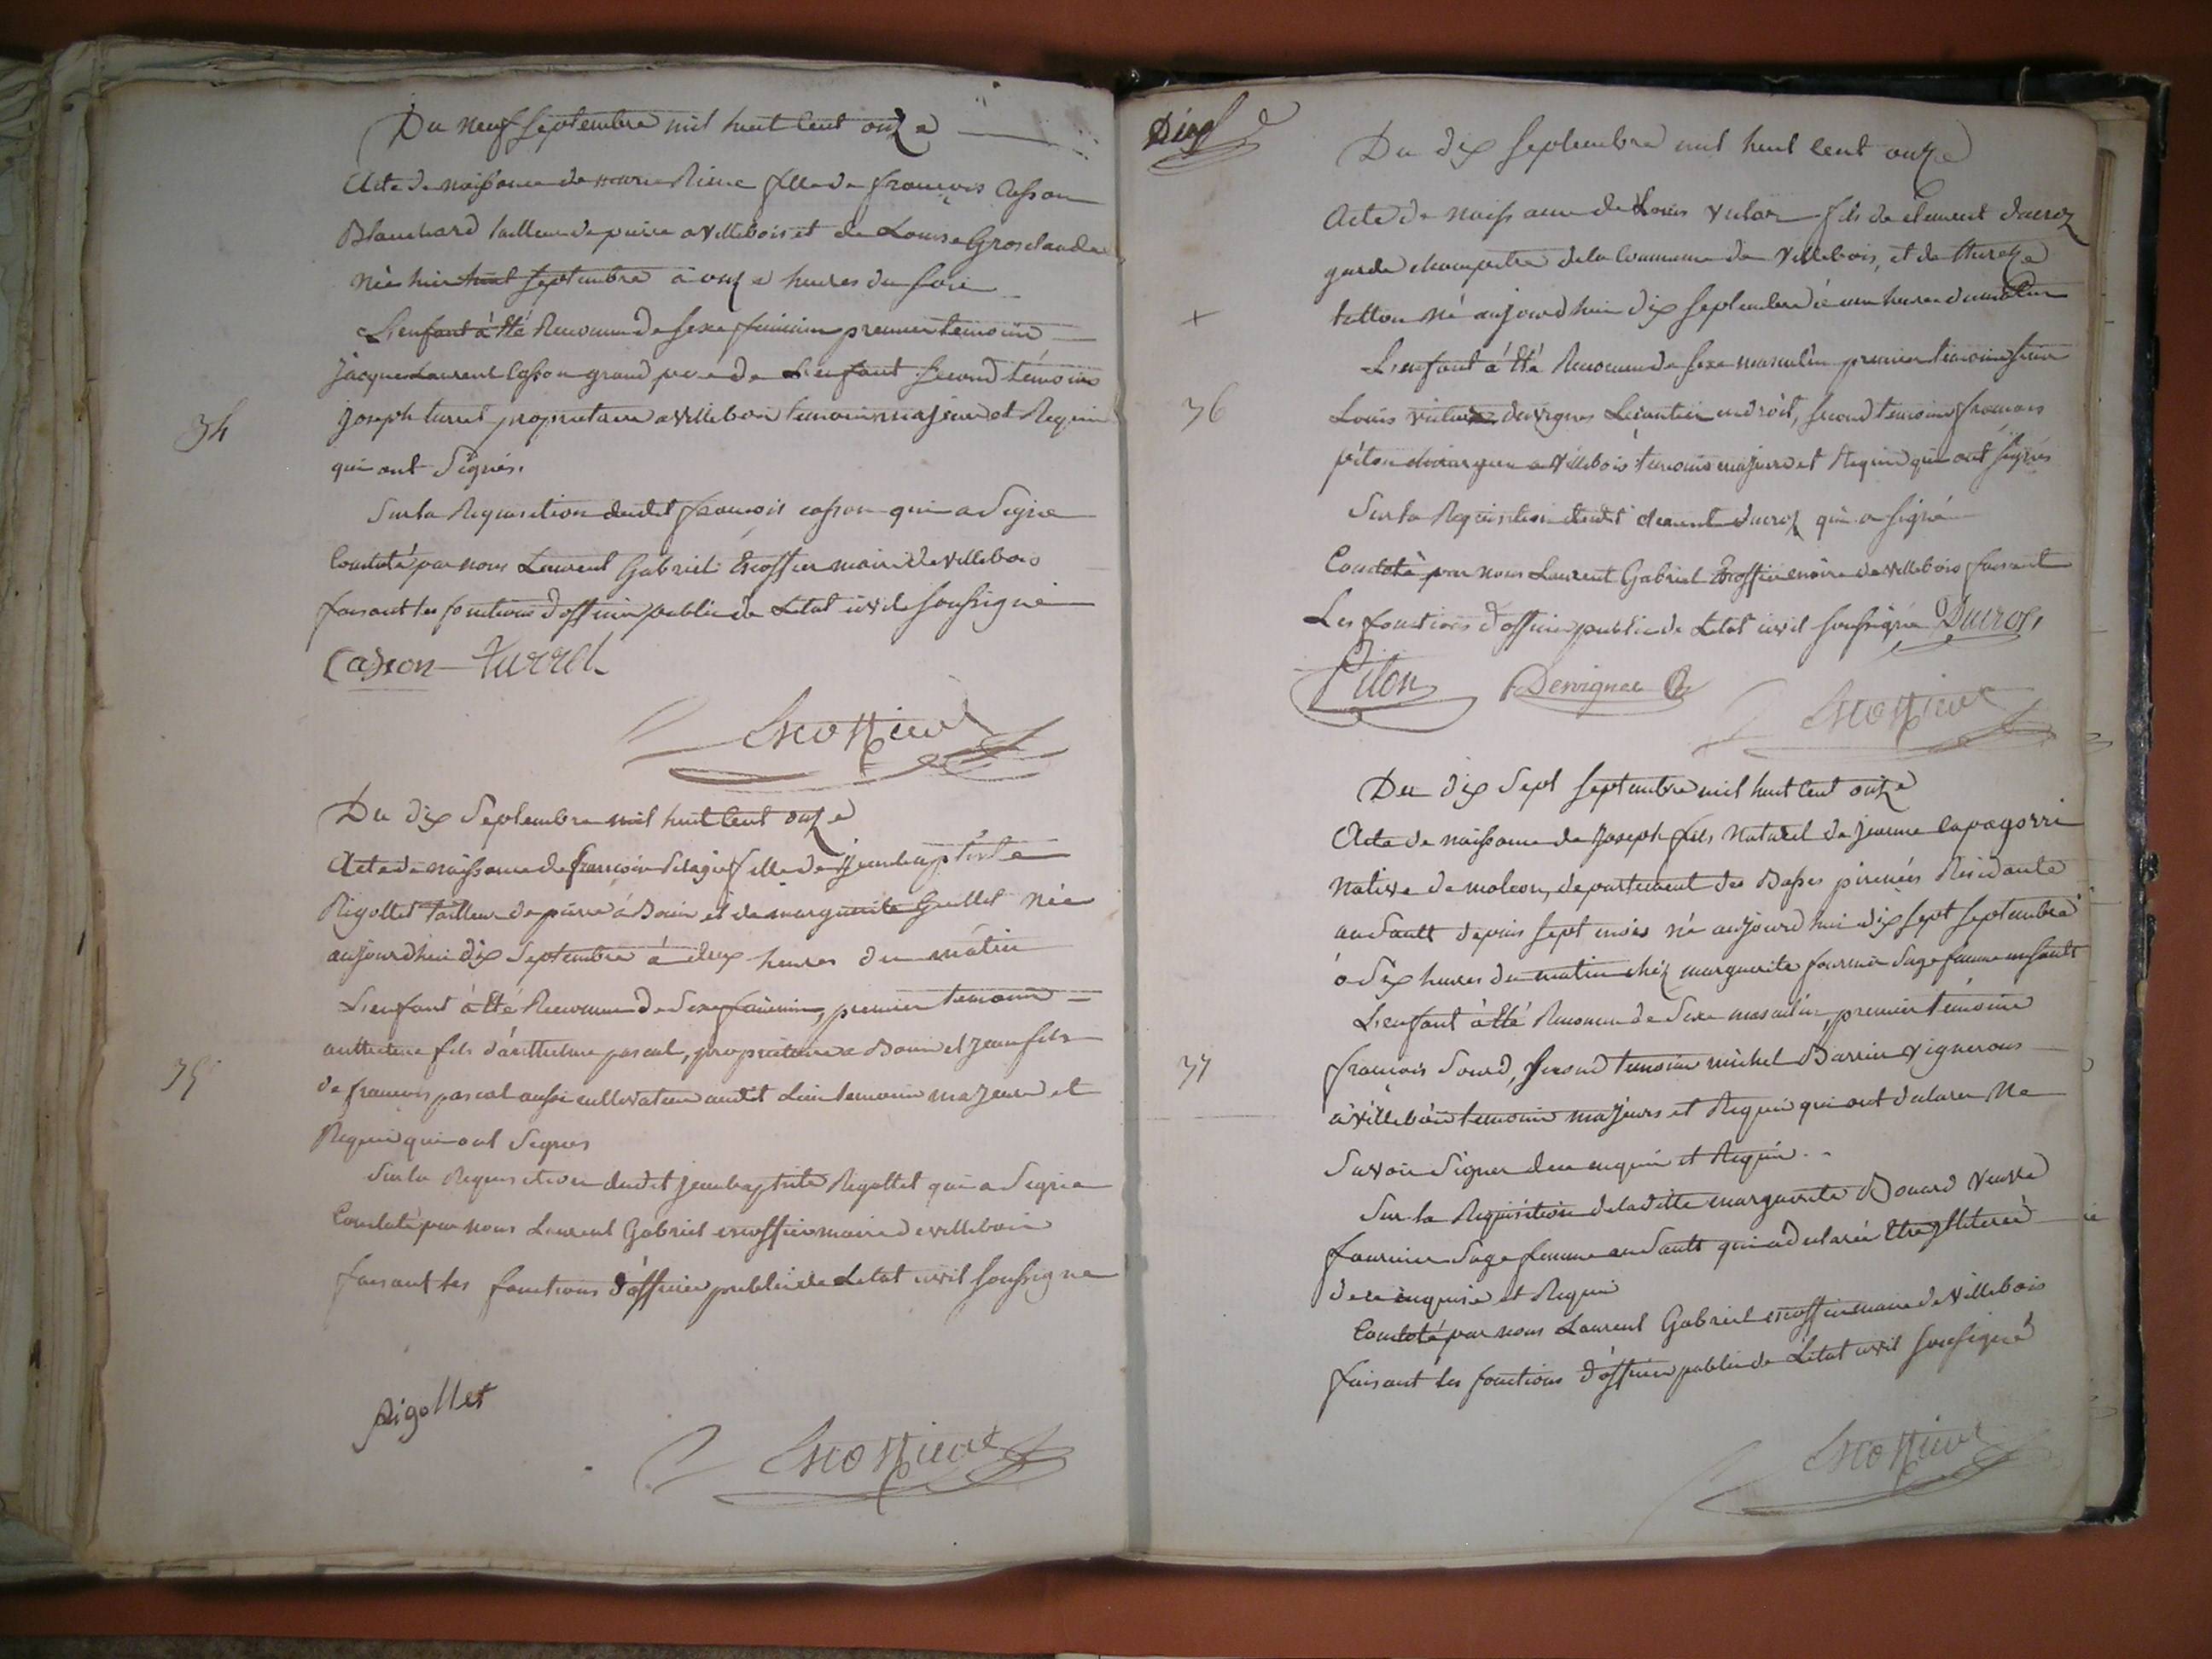 Du neuf Septembre mil huit Cent onze
Acte de naissance de marie Reine fille de françois Casson
Blanchard tailleur de pierre a Villebois et de Louise Grosclaude
née hier huit Septembre à onze heures du soir
L'enfant à été Reconnu de sexe feminin premier temoin
Jacque Laurent Casson grand pere de L'enfant second témoin
34
joseph turrel proprietaire a villebois temoins majeurs et Requis
qui ont Signés.
Sur la Requisition dudit françois casson qui a Signé
Constaté par nous Laurent Gabriel Escoffier maire de villebois
faisant les fonctions d'officier public de Letat civil soussigné
Casson Turrel
Escoffier
Du dix Septembre mil huit Cent onze
Acte de naissance de francoise Pelagie fille de jeanbaptiste
Rigollet tailleur de pierre à Bouis et de marguerite Guillet née
aujourdhui dix Septembre à deux heures du matin
L'enfant à été Reconnu de Sexe féminin, premier temoin
anthelme fils d'anthelme pascal, proprietaire a Bouis et jean fils
35
de françois pascal aussi cultivateur audit Lieu temoins majeurs et
Requis qui ont Signés
Sur la Requisition dudit jeanbaptiste Rigollet qui a Signé
Constaté par nous Laurent Gabriel escoffier maire de villebois
faisant les fonctions d'officier public de Letat civil soussigné
Rigollet
Escoffier
Du dix Septembre mil huit cent onze
Acte de naissance de Louis Victor fils de clement ducroz
garde champetre de la Commune de Villebois, et de thereze
tetton né aujourd'hui dix Septembre à une heure du matin
+
L'enfant à été Reconnu de Sexe masculin premier temoin
36
Louis victor dervignes Licentié en droit, second temoin françois
piton chirurgien a Villebois temoins majeurs et Requis qui ont signés
Sur la Requisition dudit clement ducroz qui a signé
Constaté par nous Laurent Gabriel Escoffier maire de villebois faisant
Les fonctions d'officier public de Letat civil soussigné Ducroz
Piton Dervignes
Escoffier
Du dix Sept Septembre mil huit Cent onze
Acte de naissance de Joseph fils Naturel de jeanne lapagorri
native de moleon, departement des Basses pirenées Résidante
au Sault depuis Sept mois né aujourd'hui dix sept septembre
à Six heures du matin chez marguerite fournier Sage femme au Sault
L'enfant à été Reconnu de Sexe masculin, premier témoin
37
françois Sourd, second temoin michel Barrier vignerons
à villebois temoins majeurs et Requis qui ont declarer Ne
Savoir Signer de ce enquis et Requis.
Sur la Requisition de laditte marguerite Bouard Veuve
fournier Sage femme au Sault qui a declarée Etre illiterée
de ce enquise et Requis
Constaté par nous Laurent Gabriel escoffier maire de Villebois
faisant les fonctions d'officier public de Létat civil soussigné
Escoffier